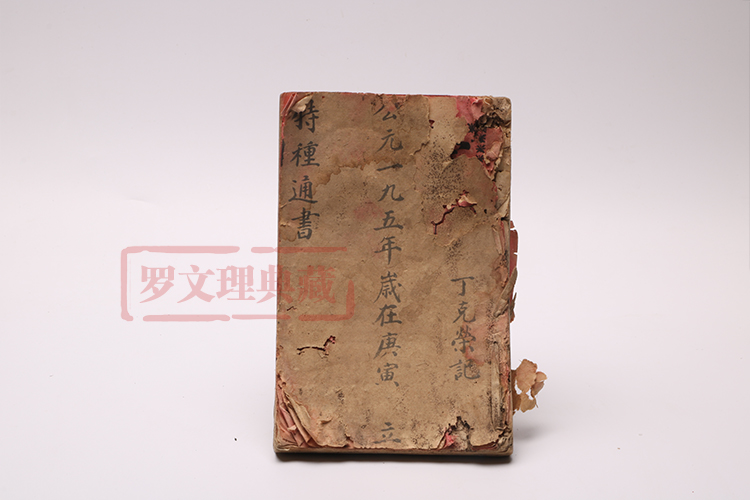 特種通書
公元一九五年歲在庚寅 立
丁克榮記
罗文理典藏